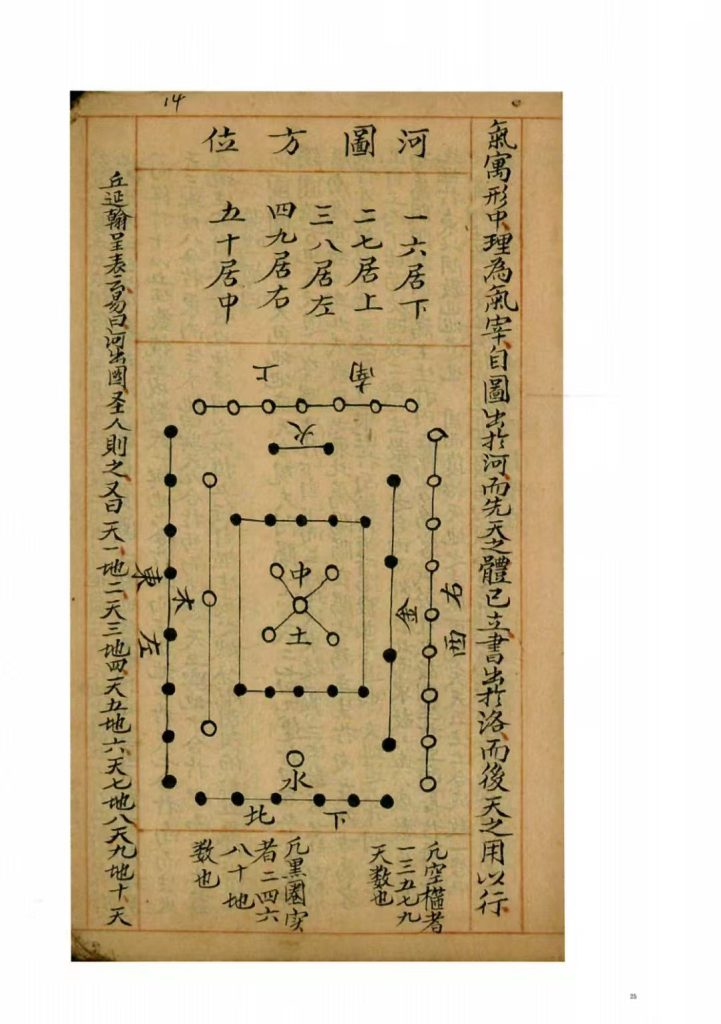 14
氣寓形中理為氣宰自圖出於河而先天之體已立書出於洛而後天之用以行
河圖方位
一六居下
二七居上
三八居左
四九居右
五十居中
南上
火
東木左
中
土
金
右西
水
北下
凡空圈者
一三五七九
天数也
凡黑圈实
者二四六
八十地
数也
丘延翰呈表云易曰河出图圣人則之又曰天一地二天三地四天五地六天七地八天九地十天
25